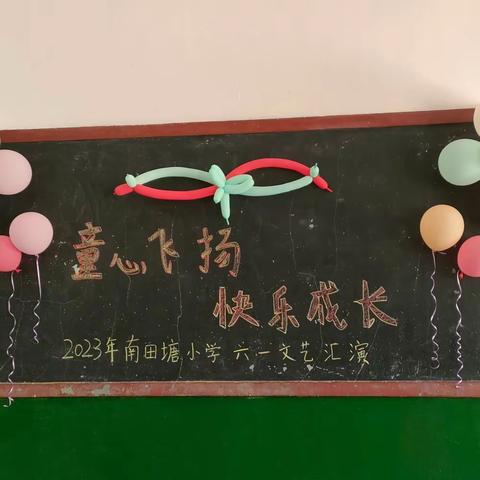 童心飞扬
快乐成长
2023年南田塘小学六一文艺汇演